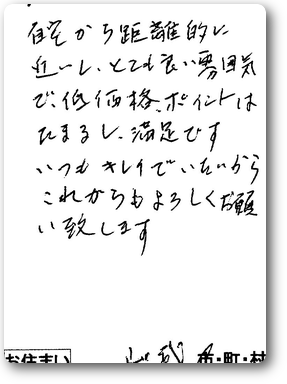 自宅から距離的に
近いし、とても良い雰囲気
で、低価格、ポイントは
たまるし、満足です
いつもキレイでいたいから
これからもよろしくお願
い致します
お住まい 市・町・村